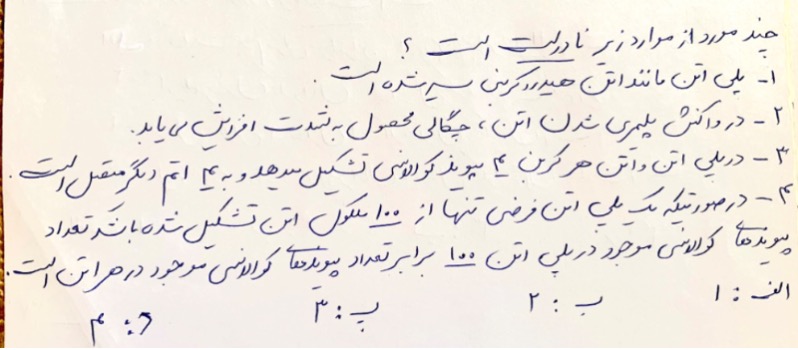 چند مورد از موارد زیر نادرست است ؟
۱- پلی اتن مانند اتن هیدروکربنی سیر شده است .
۲- در واکنش پلیمری شدن اتن ، چگالی محصول به شدت افزایش می یابد .
۳- در پلی اتن و اتن هر کربن ۴ پیوند کووالانسی تشکیل میدهد و به ۴ اتم دیگر متصل است .
۴- در صورتیکه یک پلی اتن فرضی تنها از ۱۰۰ ملکول اتن تشکیل شده باشد تعداد
پیوندهای کووالانسی موجود در پلی اتن ۱۰۰ برابر تعداد پیوندهای کووالانسی موجود در هر اتن است .
الف : ۱ ب : ۲ پ : ۳ د : ۴